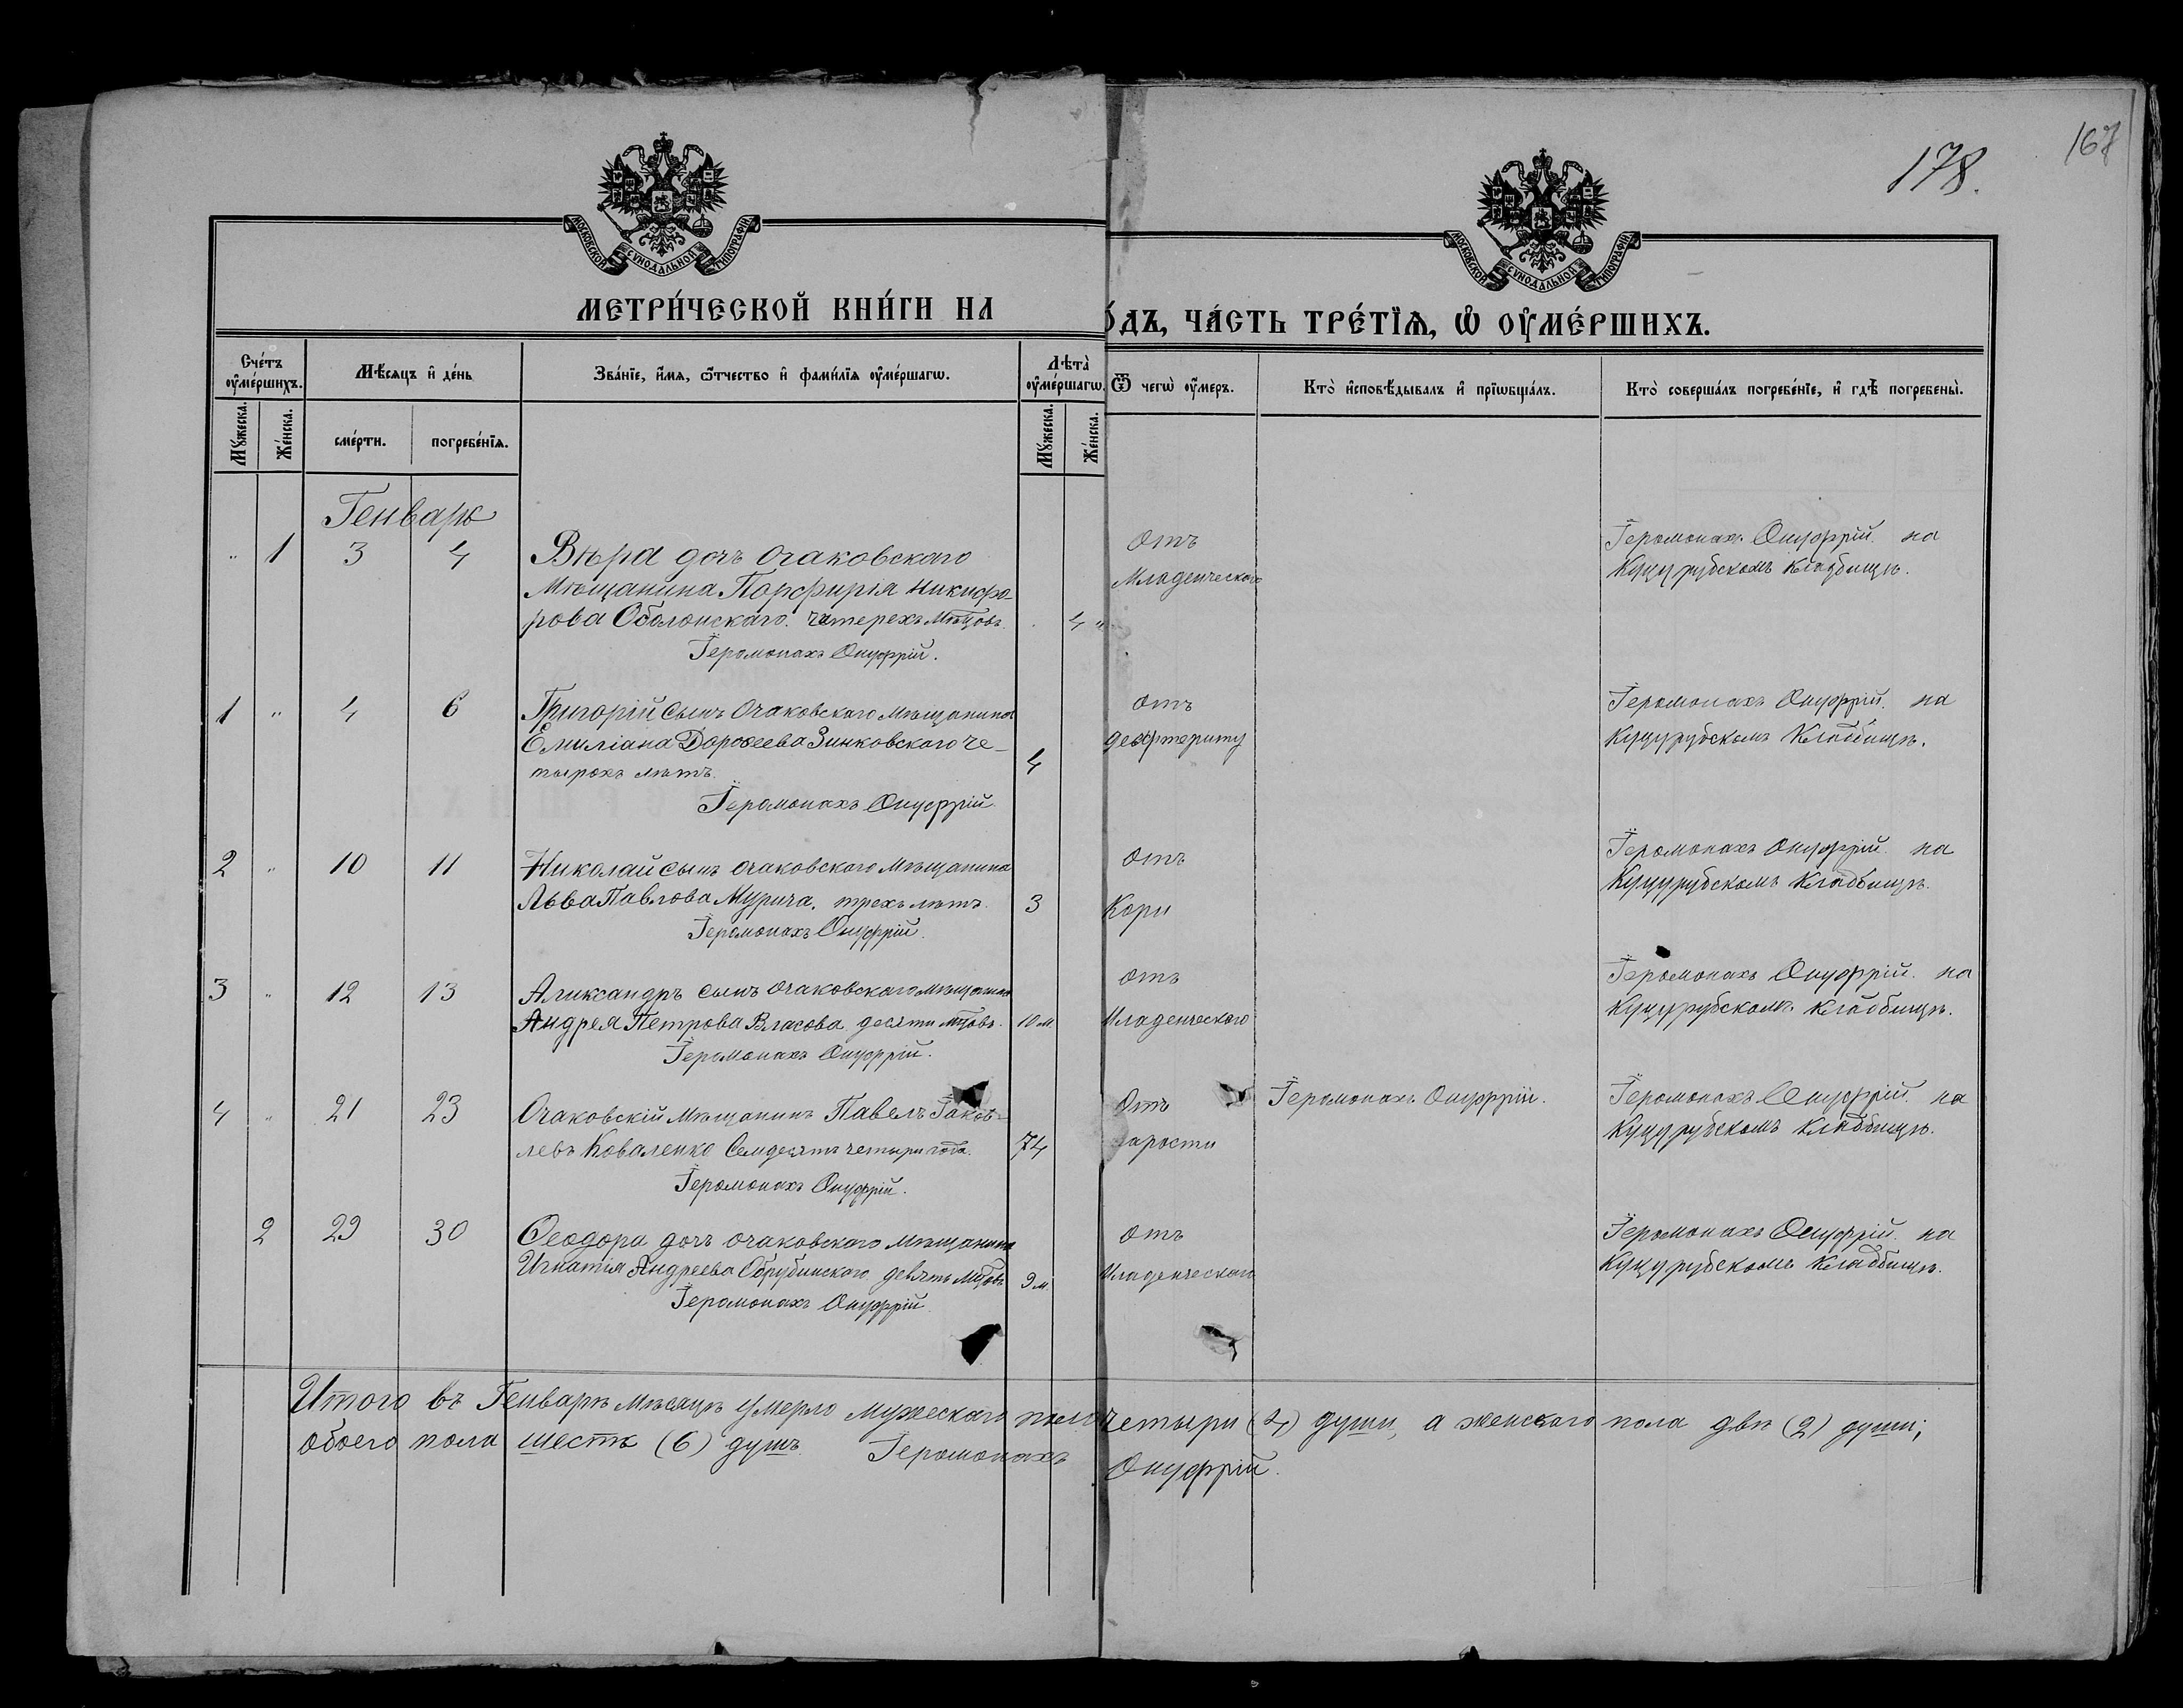 178.
167
МОСКОВСКОЙ СѴНОДАЛЬНОЙ ТИПОГРАФІИ
МОСКОВСКОЙ СѴНОДАЛЬНОЙ ТИПОГРАФІИ
МЕТРИ́ЧЕСКОЙ КНИ́ГИ НА
О́ДЪ, ЧА́СТЬ ТРЕ́ТЇѦ, Ѡ҆ ОУ҆МЕ́РШИХЪ.
Сче́тъ оу҆ме́ршихъ.
Мѣ́сяцъ и҆ де́нь
Зва́нїе, и҆́мя, ѻ҆́тчество и҆ фами́лїя оу҆ме́ршагѡ.
Лѣта̀ оу҆ме́ршагѡ.
Ѿ чегѡ̀ оу҆́меръ.
Кто̀ и҆сповѣ́дывалъ и҆ прїѡбща́лъ.
Кто̀ соверша́лъ погребе́нїе, и҆ гдѣ̀ погребены̀.
Мꙋ́жеска.
Же́нска.
сме́рти.
погребе́нїѧ.
Мꙋ́жеска.
Же́нска.
Генварь
" 1 3 4 Вѣра дочь Очаковскаго
Мѣщанина Порфирія Никифо-
рова Оболонскаго. четерехъ Мѣцовъ. 4 "
Іеромонахъ Онуфрій.
Отъ
Младенческаго
Іеромонахъ Онуфрій. на
Куцурубскомъ кладбищѣ.
1 " 4 6 Григорій сынъ Очаковскаго мѣщанина
Емиліана Дорофеева Зинковскаго че-
тырохъ лѣтъ. 4
Іеромонахъ Онуфрій
отъ
Іеромонахъ Онуфрій. на
Куцурубскомъ Кладбищѣ.
2 " 10 11 Николай сынъ Очаковскаго Мѣщанина
Льва Павлова Мурича. трехъ лѣтъ. 3
Іеромонахъ Онуфрій.
Отъ
Кори
Іеромонахъ Онуфрій. на
Куцурубскомъ Кладбищѣ.
3 " 12 13 Александръ сынъ Очаковскаго мѣщанина
Андрея Петрова Власова десяти мцовъ. 10 м.
Іеромонахъ Онуфрій.
отъ
Младенческаго
Іеромонахъ Онуфрій. на
Куцурубскомъ Кладбищѣ.
4 " 21 23 Очаковскій Мѣщанинъ Павелъ Іаков-
левъ Коваленко Семдесятъ четыри года. 74
Іеромонахъ Онуфрій.
Отъ
тарости
Іеромонахъ Онуфрій.
Іеромонахъ Онуфрій. на
Куцурубскомъ кладбищѣ.
2 29 30 Феодора дочь Очаковскаго мѣщанина
Игнатія Андреева девять Мцовъ 9 м.
Іеромонахъ Онуфрій.
отъ
Младенческаго
Іеромонахъ Онуфрій. на
Куцурубскомъ Кладбищѣ.
Итого въ Генварѣ Мѣсяцѣ умерло мужескаго пола четыри (4) души, а женскаго пола двѣ (2) души;
обоего пола шесть (6) душъ. Іеромонахъ Онуфрій.